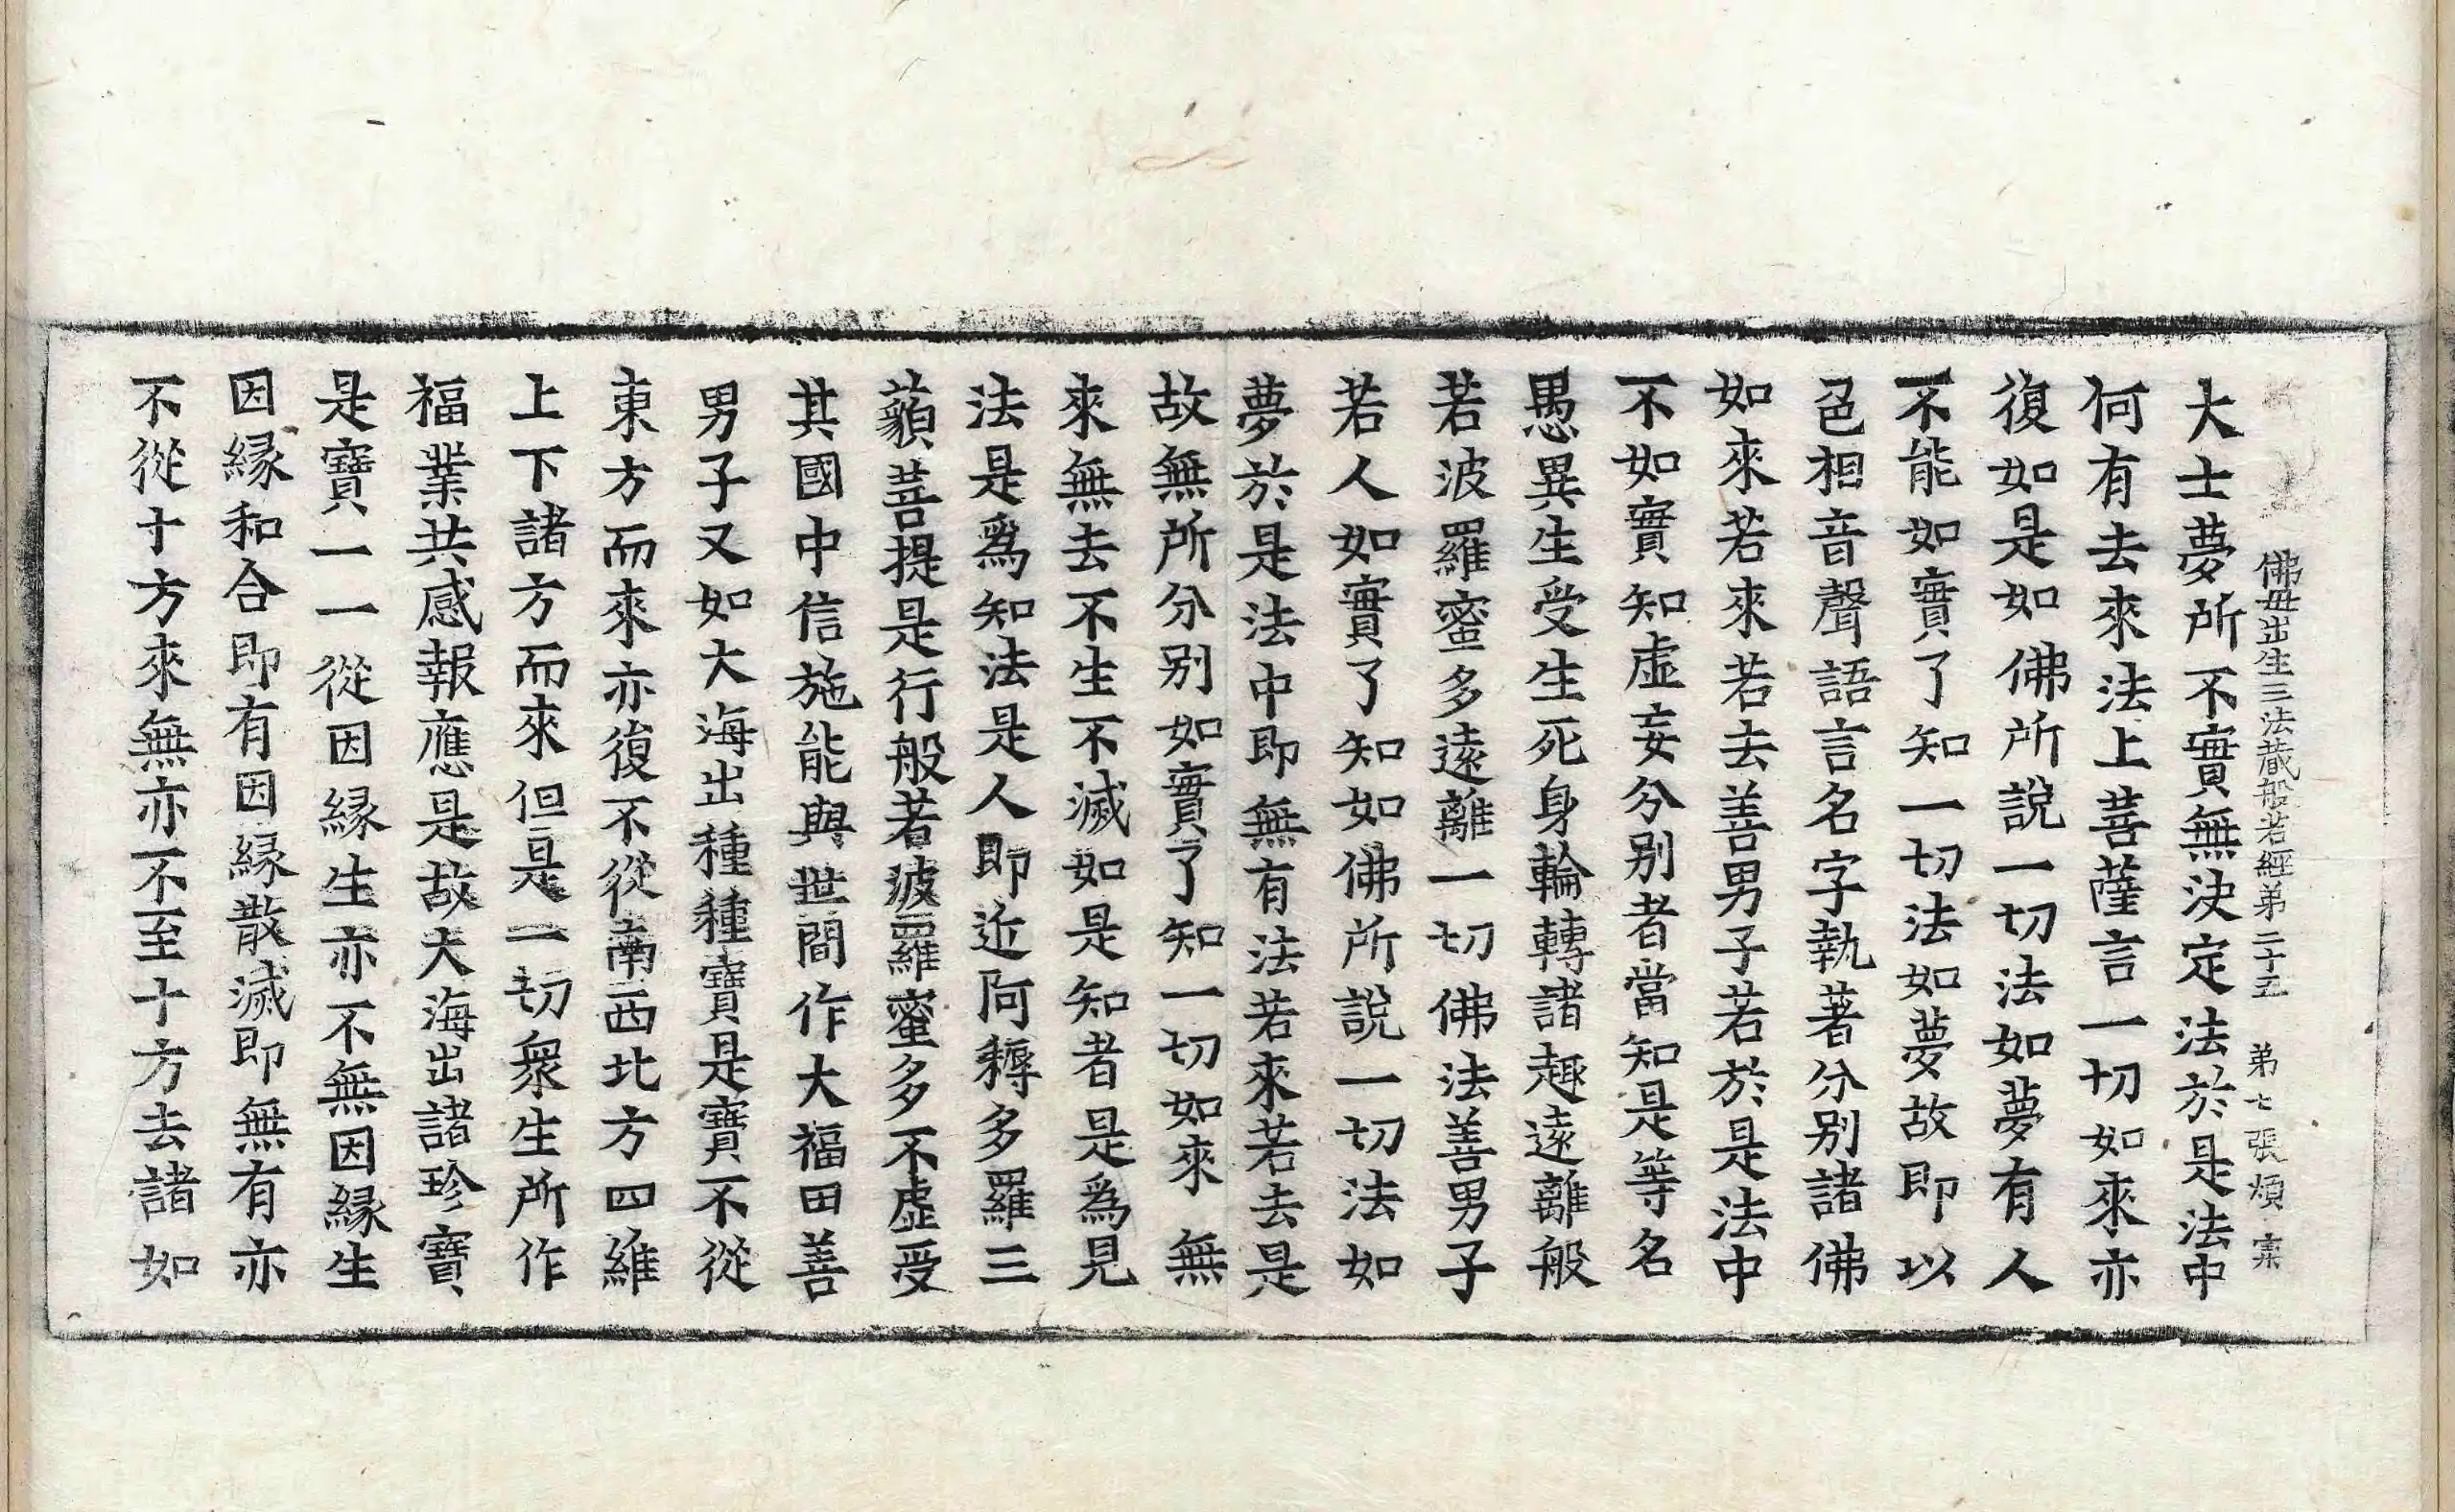 佛母出生三法藏般若經弟二十五　弟七張　煩　宲
大士夢所不實無決定法於是法中
何有去來法上菩薩言一切如來亦
復如是如佛所說一切法如夢有人
不能如實了知一切法如夢故即以
色相音聲語言名字執著分别諸佛
如來若來若去善男子若於是法中
不如實知虛妄分别者當知是等名
愚異生受生死身輪轉諸趣遠離般
若波羅蜜多遠離一切佛法善男子
若人如實了知如佛所說一切法如
夢於是法中即無有法若來若去是
故無所分别如實了知一切如來無
來無去不生不滅如是知者是爲見
法是爲知法是人即近阿耨多羅三
藐菩提是行般若波羅蜜多不虛受
其國中信施能與世間作大福田善
男子又如大海出種種寶是寶不從
東方而來亦復不從南西北方四維
上下諸方而來但是一切衆生所作
福業共感報應是故大海出諸珍寶
是寶一一從因縁生亦不無因縁生
因縁和合即有因縁散滅即無有亦
不從十方來無亦不至十方去諸如